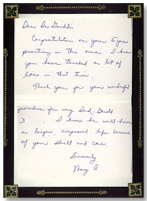 Dear Dr
Congratulations on your 5 year
practicing in this area. I know
you have touched a lot of
lives in that time.
Thank you for your wonderful
procedure for my Dad,
3. I know he will have
a longer, improved life because
of your skill and care.
Sincerely
Mary